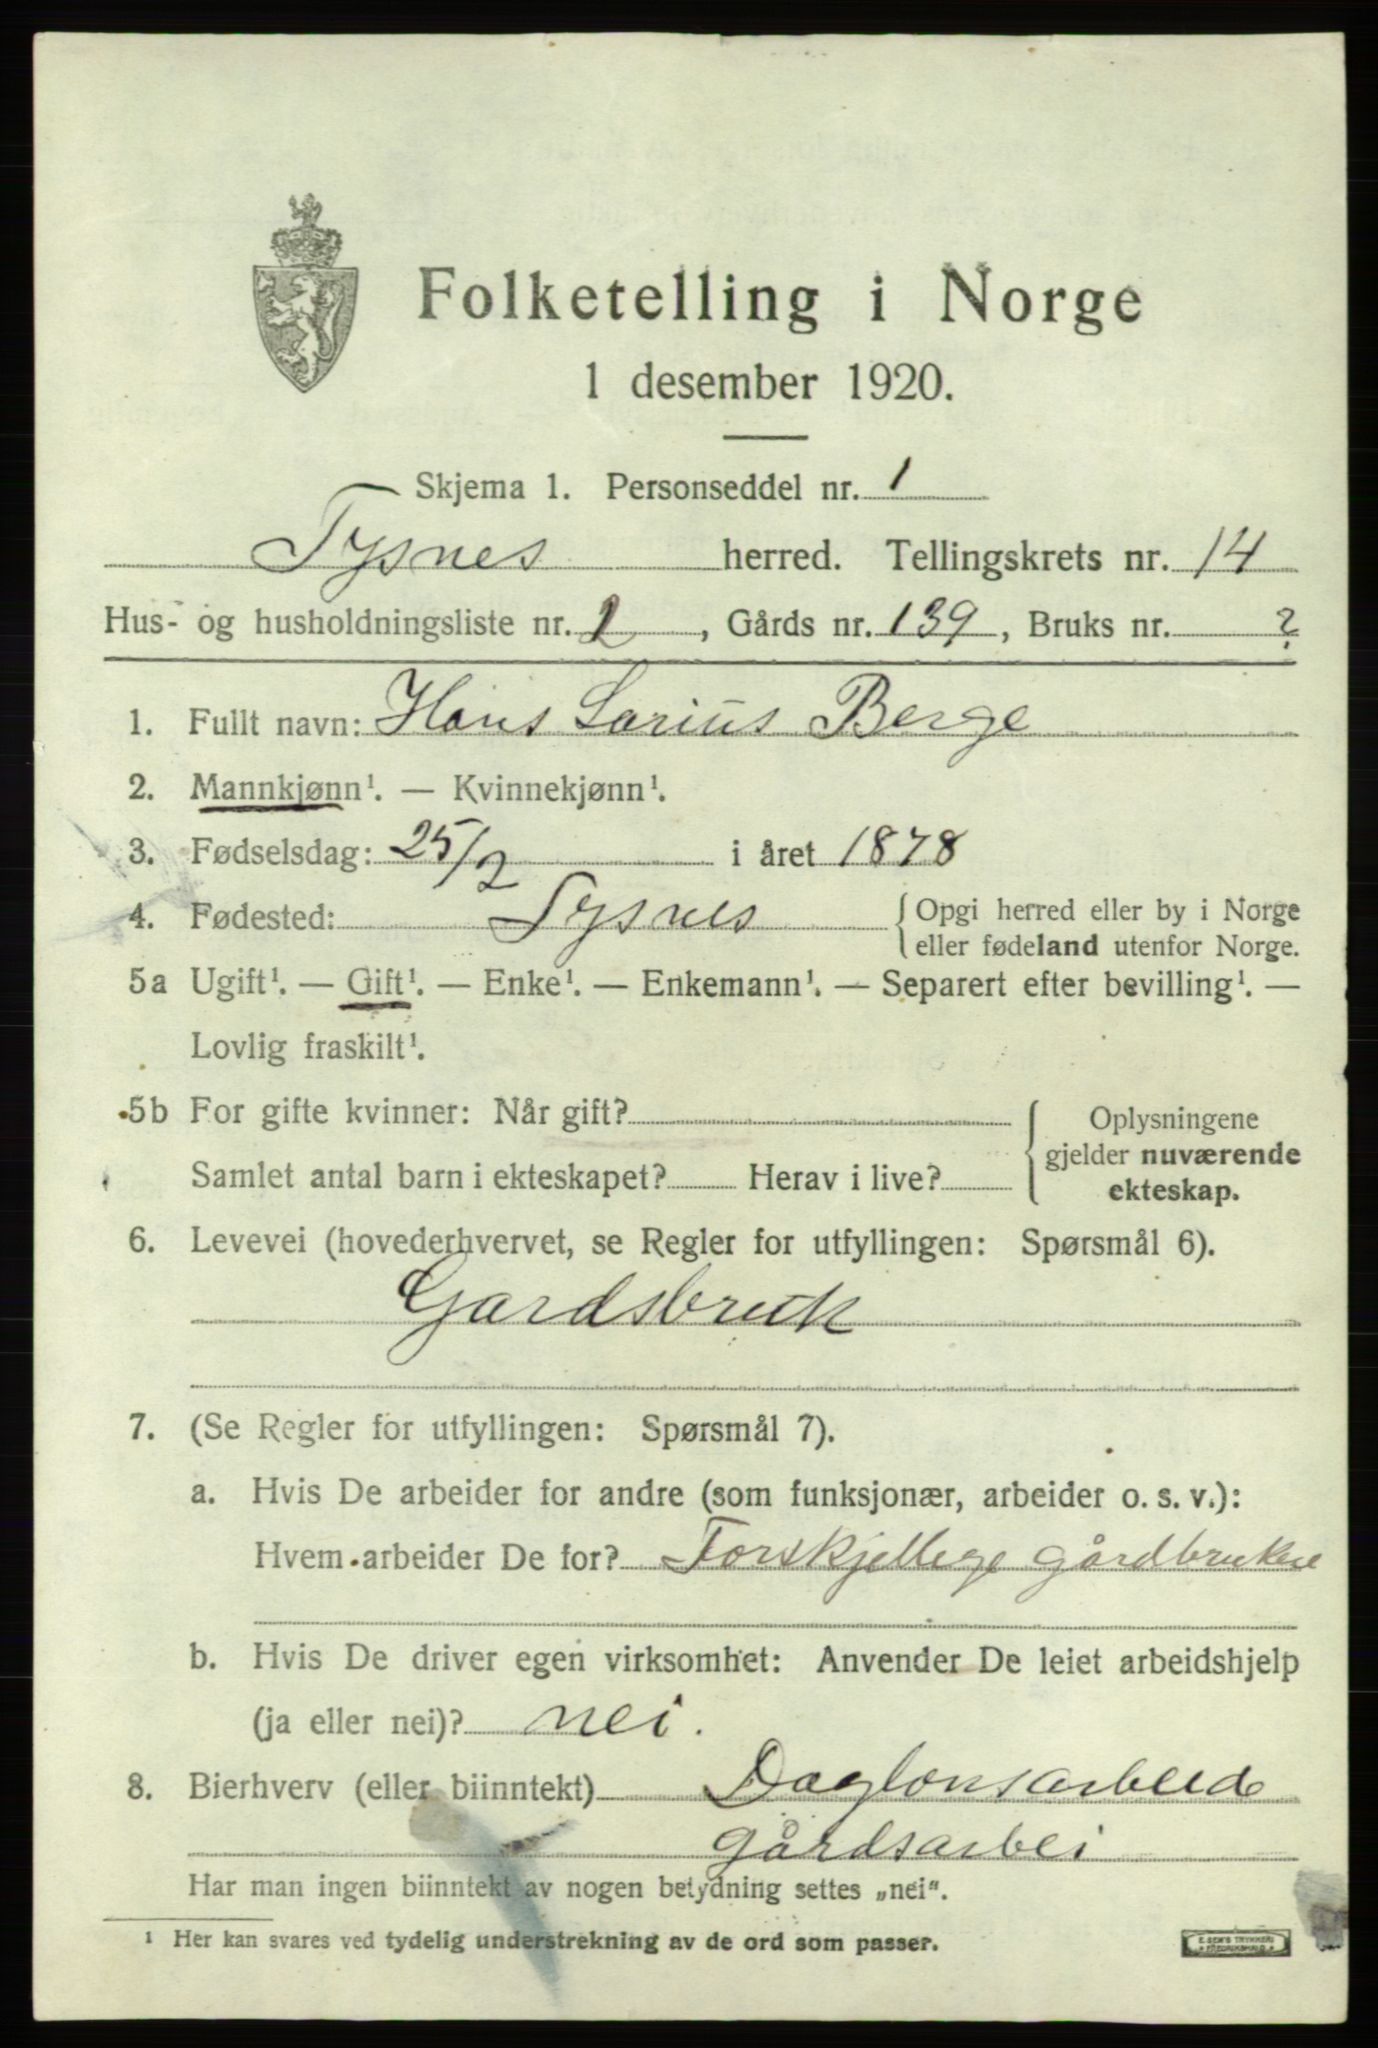 Folketelling i Norge
1 desember 1920.
Skjema 1. Personseddel nr. 1
Tysnes herred. Tellingskrets nr. 14
Hus- og husholdningsliste nr. , Gårds nr. 139, Bruks nr. ?
1. Fullt navn: Hans Larius Berge
2. Mannkjønn¹. — Kvinnekjønn¹.
3. Fødselsdag: 25/2 i året 1878
4. Fødested: Tysnes { Opgi herred eller by i Norge
eller fødeland utenfor Norge.
5a Ugift¹. — Gift¹. — Enke¹. — Enkemann¹. — Separert efter bevilling¹. —
Lovlig fraskilt¹.
5b For gifte kvinner: Når gift?
Samlet antal barn i ekteskapet? Herav i live?
{ Oplysningene
gjelder nuværende
ekteskap.
6. Levevei (hovederhvervet, se Regler for utfyllingen: Spørsmål 6).
Gardsbruk
7. (Se Regler for utfyllingen: Spørsmål 7).
a. Hvis De arbeider for andre (som funksjonær, arbeider o. s. v.):
Hvem arbeider De for? Forskjellege gårdbrukere
b. Hvis De driver egen virksomhet: Anvender De leiet arbeidshjelp
(ja eller nei)? nei.
8. Bierhverv (eller biinntekt) Daglonsarbeide
gårdsarbei
Har man ingen biinntekt av nogen betydning settes „nei".
¹ Her kan svares ved tydelig understrekning av de ord som passer.
E. SEM'S TRYKKERI
FREDRIKSHALD